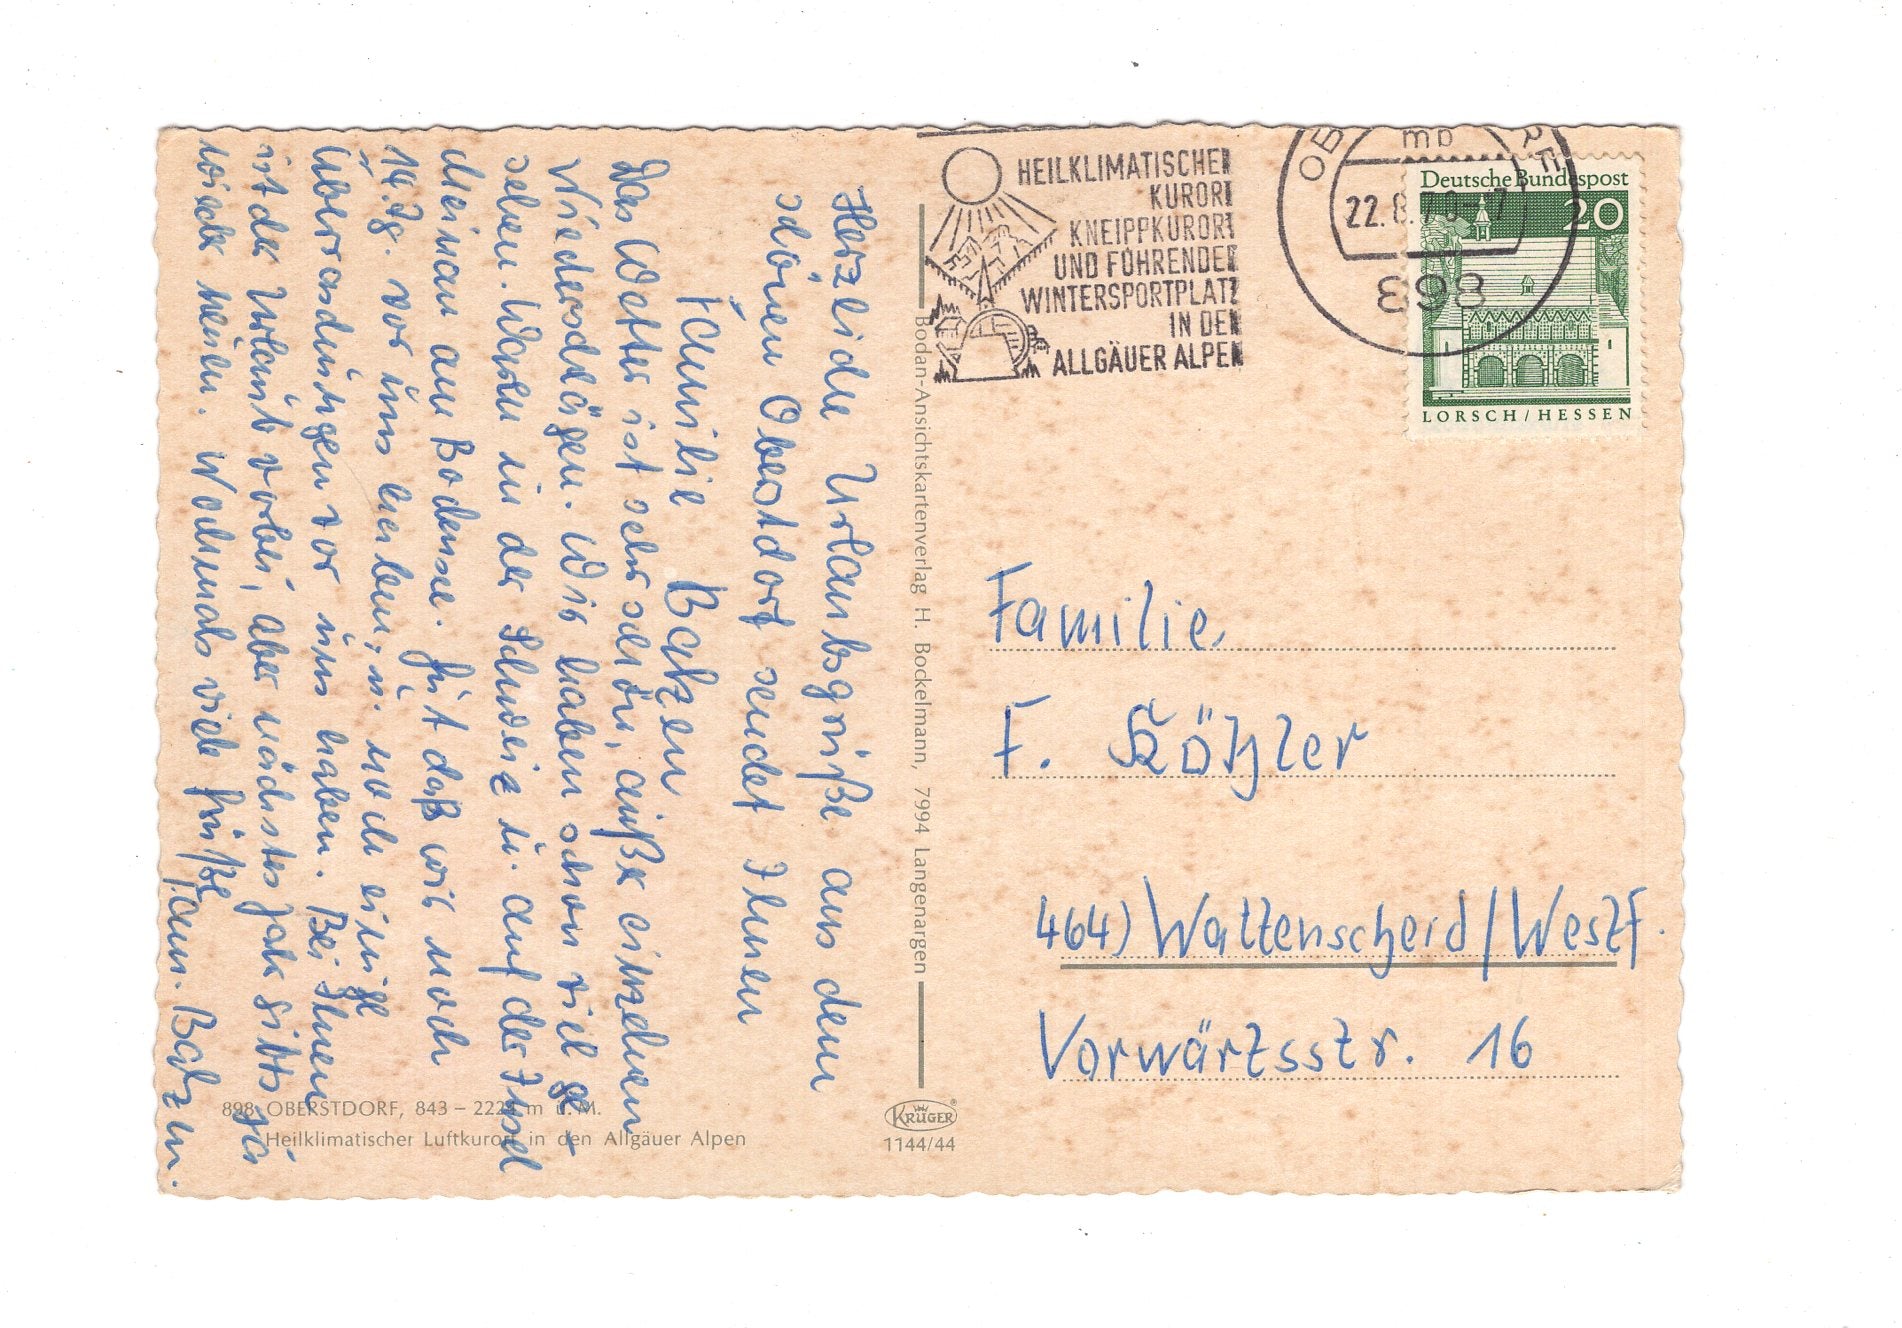 Herzliche Urlaubsgrüße aus dem
schönen Oberstdorf sendet Ihnen
Familie Batzen
Das Wetter ist sehr schön, außer einzelnen
Niederschlägen. Wir haben schon viel ge-
sehen. Waren in der Schweiz u. auf der Insel
Meinau am Bodensee. Gut daß wir noch
14. Tg. vor uns haben, u. noch einige
Überraschungen vor uns haben. Bei Ihnen
ist der Urlaub vorbei, aber nächstes Jahr gibts ja
wieder neuen. Nochmals viele Grüße
Fam. Batzen.
HEILKLIMATISCHER
KURORT
KNEIPPKURORT
UND FÜHRENDER
WINTERSPORTPLATZ
IN DEN
ALLGÄUER ALPEN
mb
22.8.70-7
898
Deutsche Bundespost
20
LORSCH/HESSEN
Bodan-Ansichtskartenverlag H. Bockelmann, 7994 Langenargen
Familie
F. Kötzler
464) Wattenscheid/Westf.
Vorwärtsstr. 16
898 OBERSTDORF, 843 – 2224 m ü. M.
Heilklimatischer Luftkurort in den Allgäuer Alpen
KRÜGER
1144/44